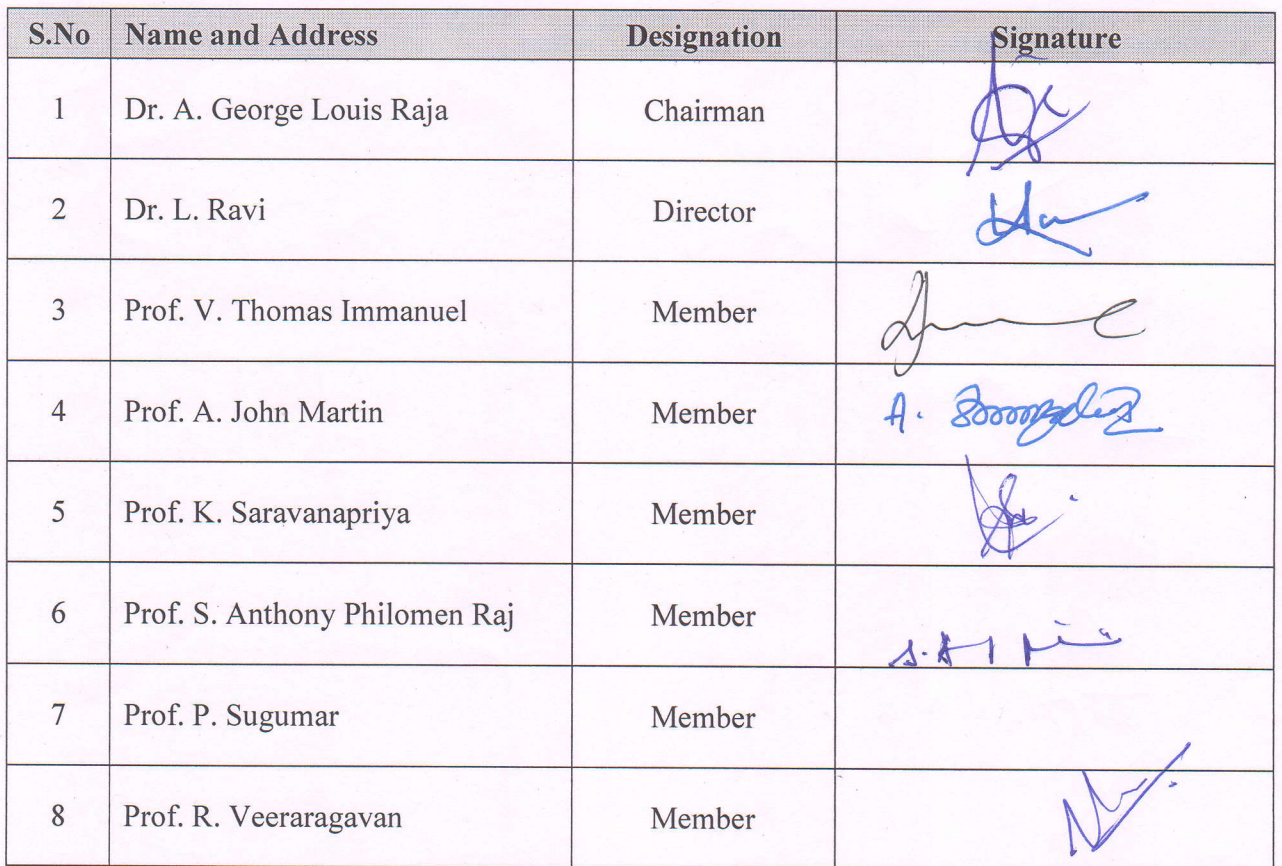 S.No Name and Address Designation Signature
1 Dr. A. George Louis Raja Chairman
2 Dr. L. Ravi Director
3 Prof. V. Thomas Immanuel Member
4 Prof. A. John Martin Member A.
5 Prof. K. Saravanapriya Member
6 Prof. S. Anthony Philomen Raj Member
7 Prof. P. Sugumar Member
8 Prof. R. Veeraragavan Member